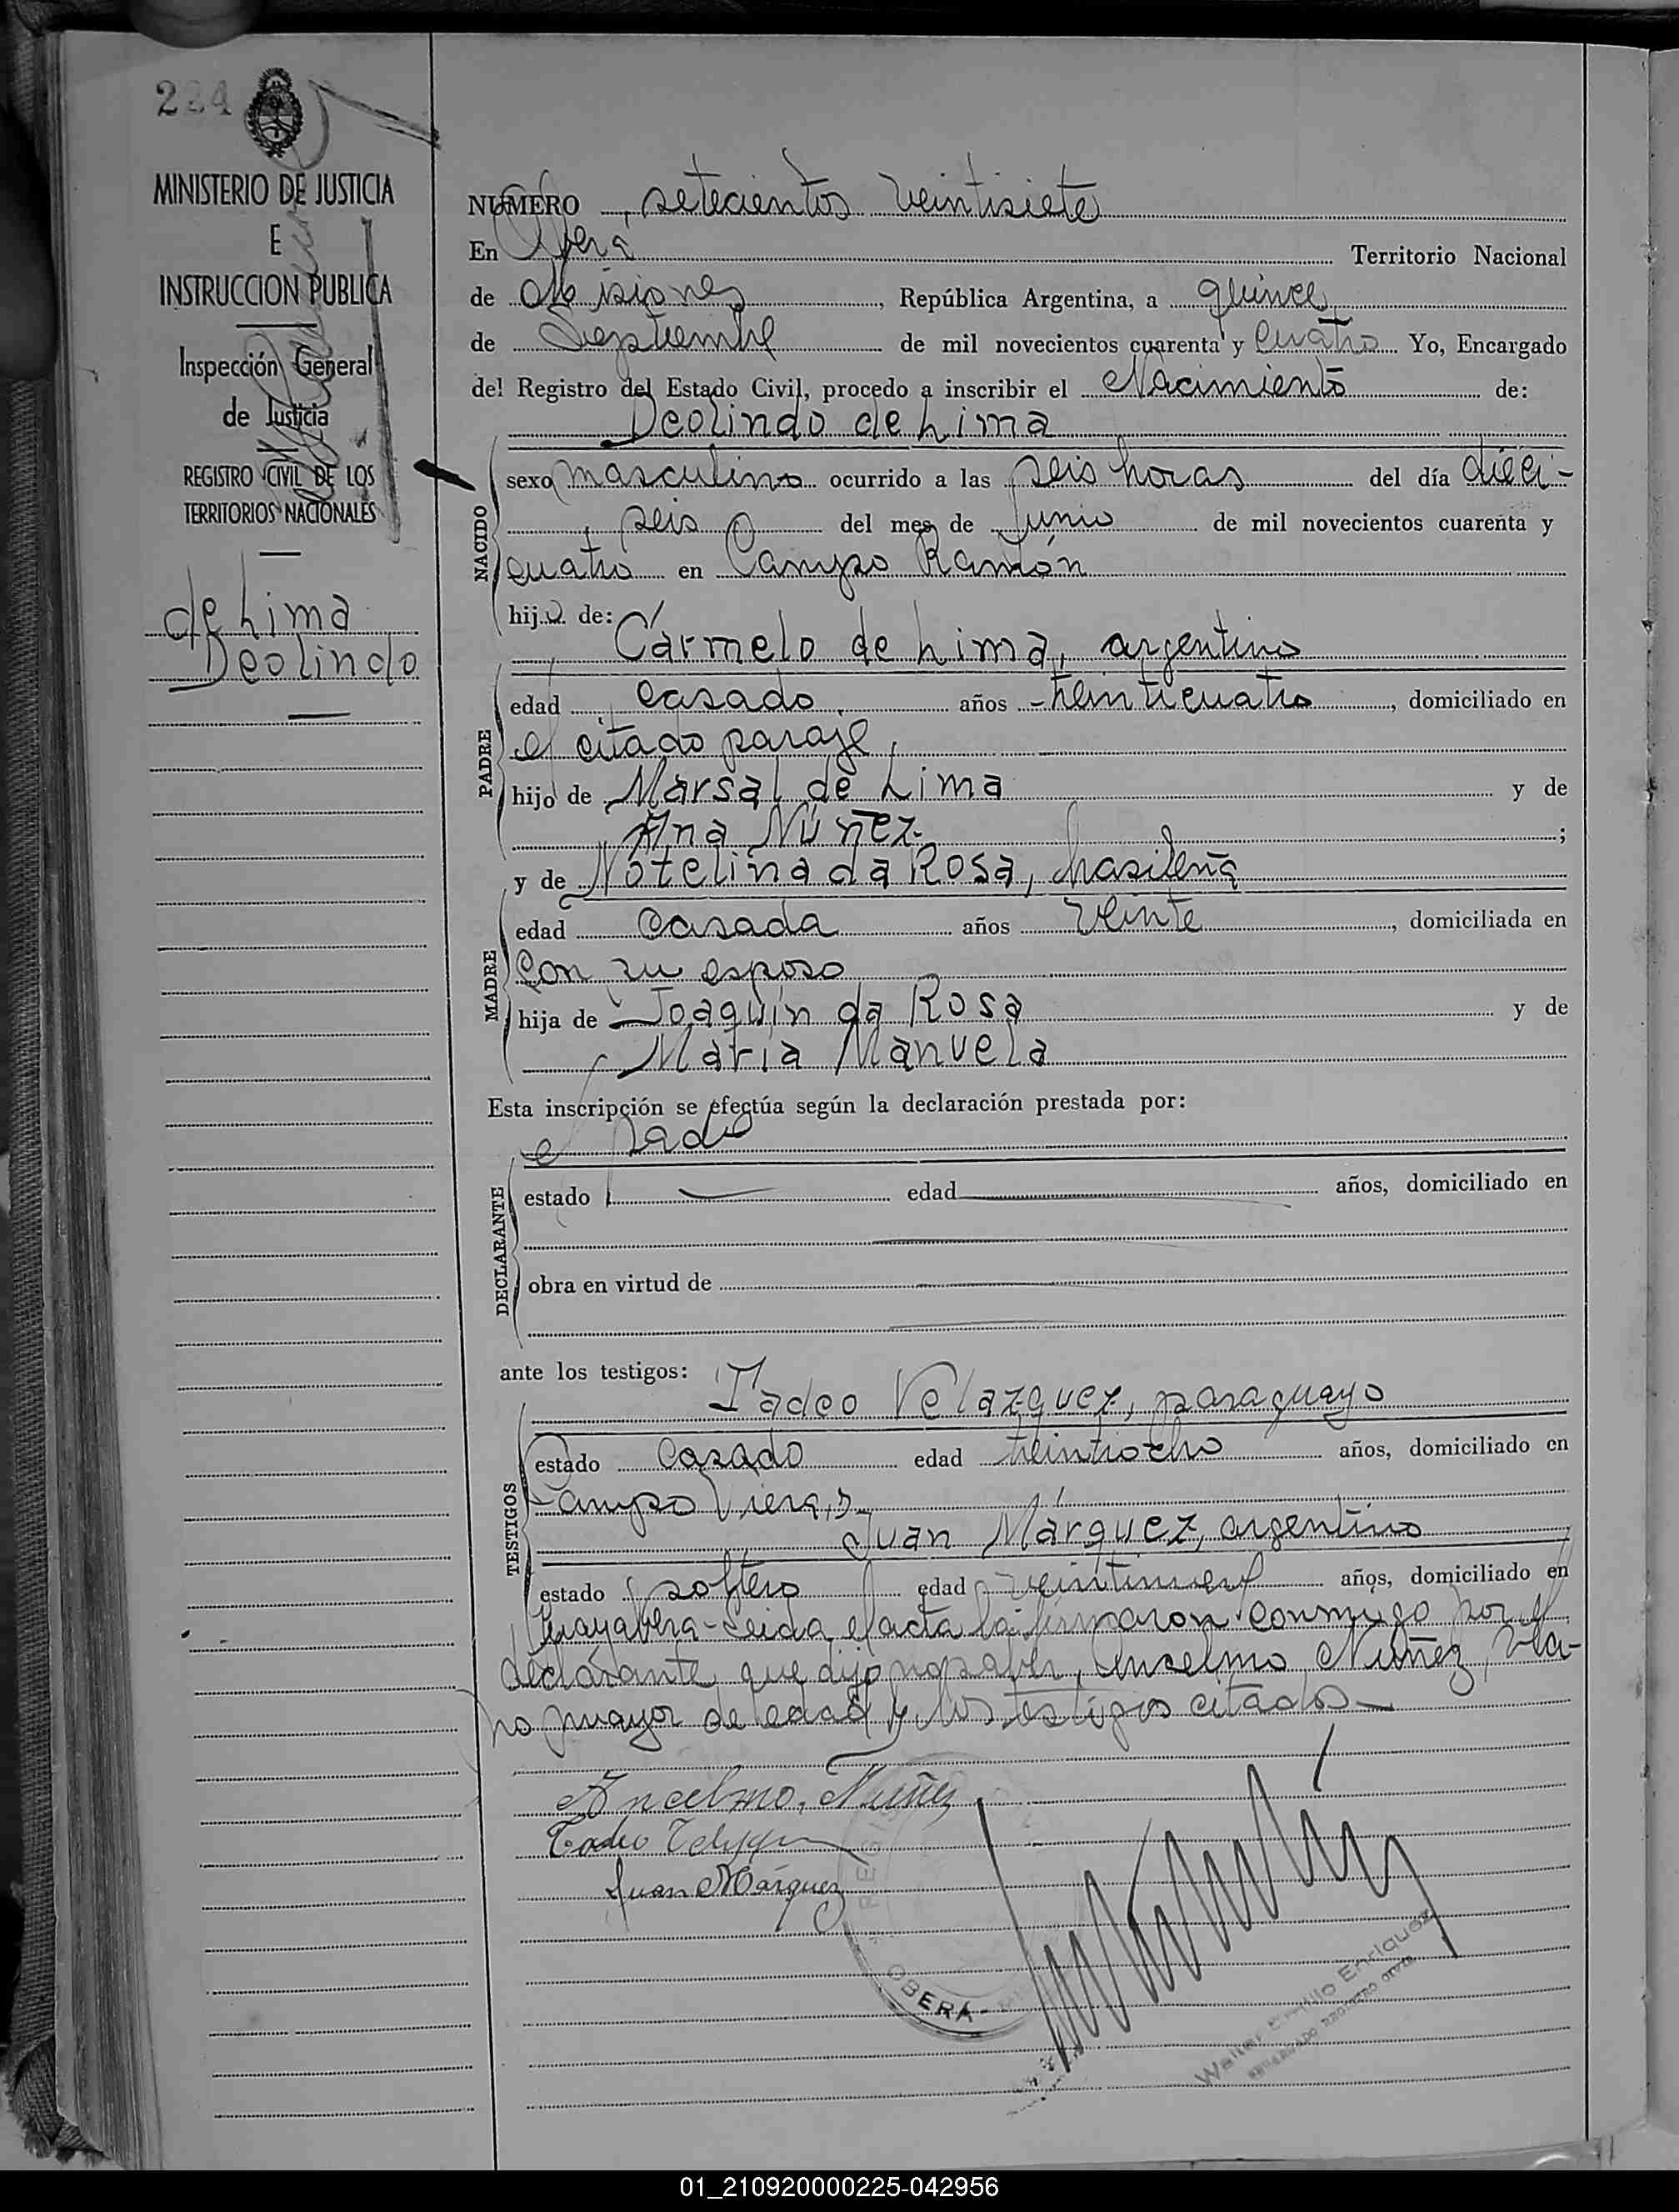 224
MINISTERIO DE JUSTICIA
E
INSTRUCCION PUBLICA
Inspección General
de Justicia
REGISTRO CIVIL DE LOS
TERRITORIOS NACIONALES
de Lima
Deolindo
NUMERO setecientos veintisiete
En Oberá Territorio Nacional
de Misiones, República Argentina, a quince
de Septiembre de mil novecientos cuarenta y cuatro Yo, Encargado
del Registro del Estado Civil, procedo a inscribir el Nacimiento de:
Deolindo de Lima
NACIDO
sexo masculino ocurrido a las seis horas del día dieci-
seis del mes de Junio de mil novecientos cuarenta y
cuatro en Campo Ramón
hijo de:
Carmelo de Lima, argentino
PADRE
edad casado, años treinticuatro, domiciliado en
el citado paraje,
hijo de Marsal de Lima y de
Ana Núñez ;
y de Notelina da Rosa, brasileña
MADRE
edad casada años veinte, domiciliada en
con su esposo
hija de Joaquín da Rosa y de
María Manuela
Esta inscripción se efectúa según la declaración prestada por:
el padre
DECLARANTE
estado edad años, domiciliado en
obra en virtud de
ante los testigos:
Tadeo Velazquez, paraguayo
TESTIGOS
estado casado edad treintiocho años, domiciliado en
Campo Viera, y
Juan Márquez, argentino
estado soltero edad veintinueve años, domiciliado en
Guayabera - Leida el acta la firmaron conmigo por el
declarante que dijo no saber, Anselmo Núñez, veci-
no mayor de edad y los testigos citados -
Ancelmo Nuñez
Tadeo
Juan Márquez
REGI
OBERA -
Walter Emilio Enriquez
ENCARGADO REGISTRO CIVIL
01_210920000225-042956